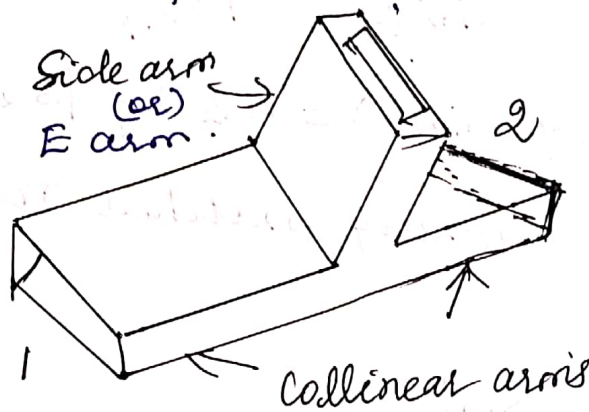 Side arm
(or)
E arm.
2
1
Collinear arms